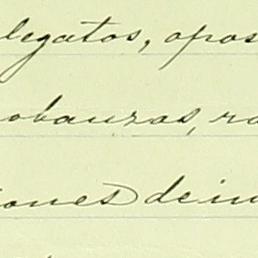 legatos, opos
obanzas, ra
iones de in